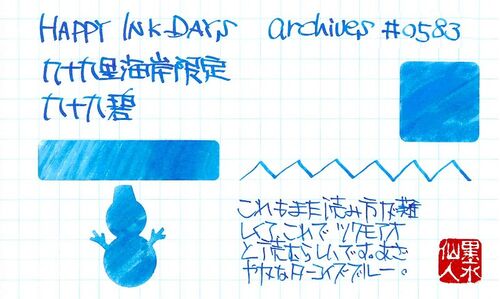 HAPPY INK-DAYS archives #0583
九十九里海岸限定
九十九碧
これもまた読み方が難
しくて、これで ツクモアオ
と読むらしいです。あざ
やかなターコイズブルー。
墨水
仙人